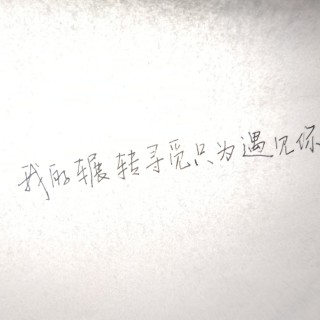 我的辗转寻觅只为遇见你